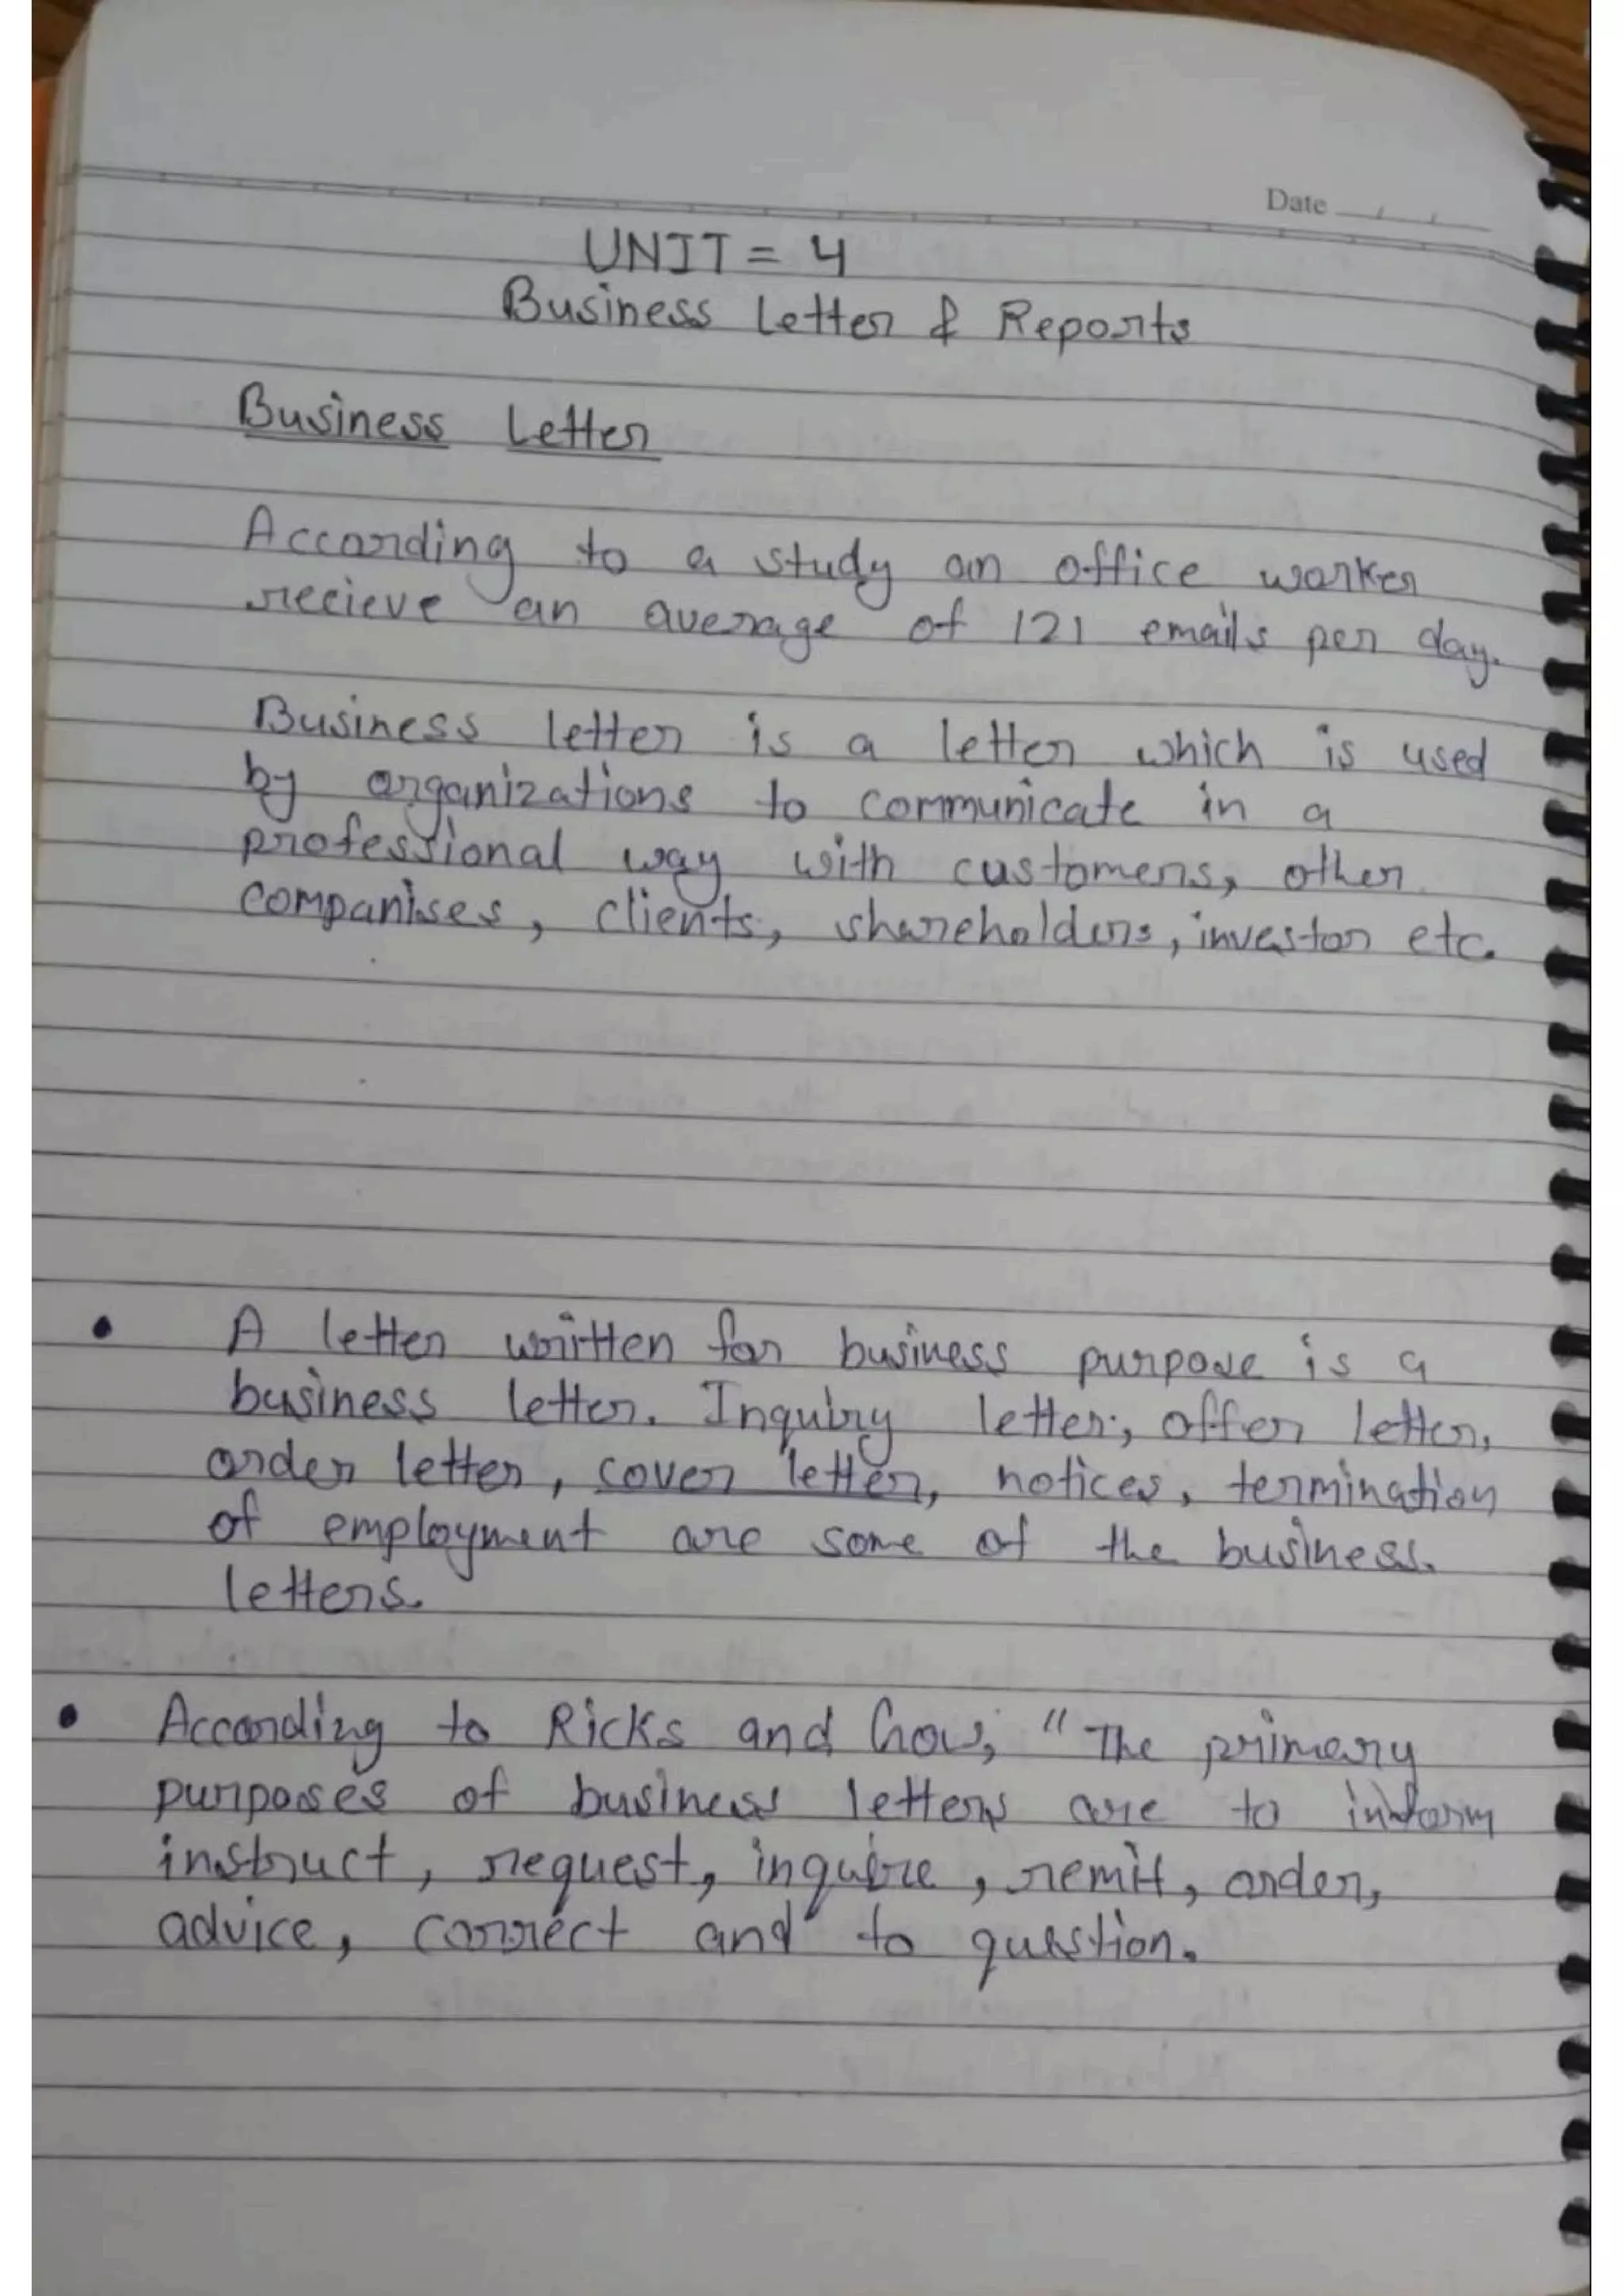 Date / /
UNIT = 4
Business Letter & Reports
Business Letter
According to a study an office worker
recieve an average of 121 emails per day.
Business letter is a letter which is used
by organizations to communicate in a
professional way with customers, other
companises, clients, shareholders, investor etc.
• A letter written for business purpose is a
business letter. Inquiry letter, offer letter,
order letter, cover letter, notices, termination
of employment are some of the business.
letters.
• According to Ricks and Gow, "The primary
purposes of business letters are to inform
instruct, request, inquire, remit, order,
advice, correct and to question.